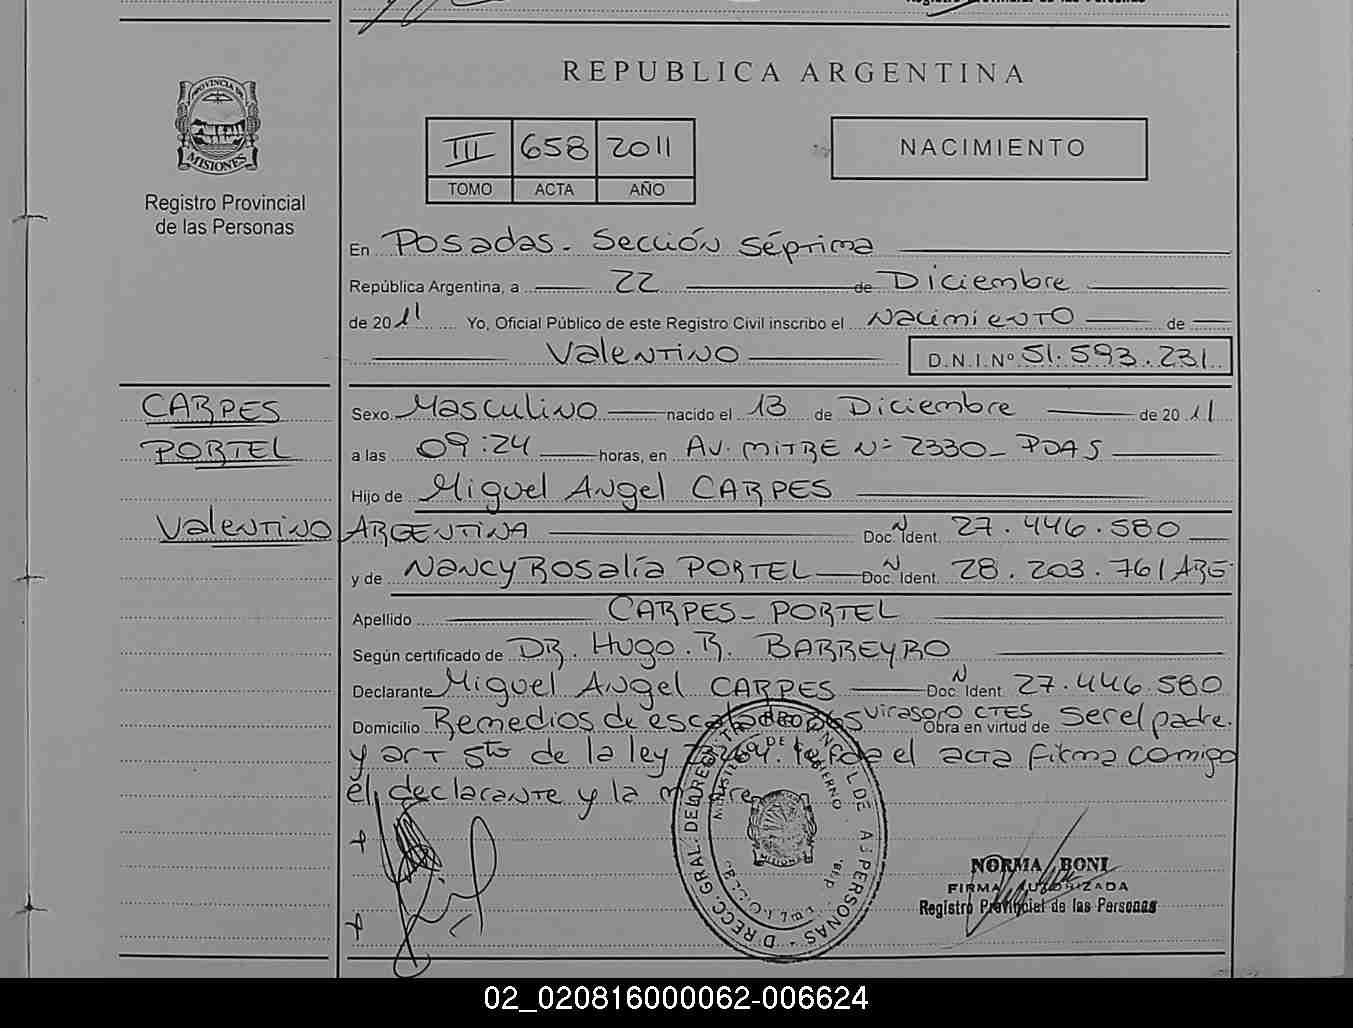 REPUBLICA ARGENTINA
PROVINCIA DE
MISIONES
Registro Provincial
de las Personas
III 658 2011
TOMO ACTA AÑO
NACIMIENTO
En Posadas - Sección Séptima
República Argentina, a 22 de Diciembre
de 2011 Yo, Oficial Público de este Registro Civil inscribo el Nacimiento de
Valentino D.N.I.Nº 51.593.231
CARPES
PORTEL
Valentino
Sexo Masculino nacido el 13 de Diciembre de 2011
a las 09:24 horas, en Av. MITRE Nº 2330 - PDAS
Hijo de Miguel Angel CARPES
ARGENTINA Doc. Ident. N 27.446.580
y de Nancy Rosalía PORTEL Doc. Ident. N 28.203.761 ARG
Apellido CARPES - PORTEL
Según certificado de DR. Hugo. R. BARREYRO
Declarante Miguel Angel CARPES Doc. Ident. N 27.446.580
Domicilio Remedios de escalada Virasoro CTES Obra en virtud de ser el padre.
y art 5to de la ley el acta firma comigo
el declarante y la madre
MINISTERIO DE GOBIERNO
MISIONES
NORMA BONI
FIRMA AUTORIZADA
Registro Provincial de las Personas
02_020816000062-006624